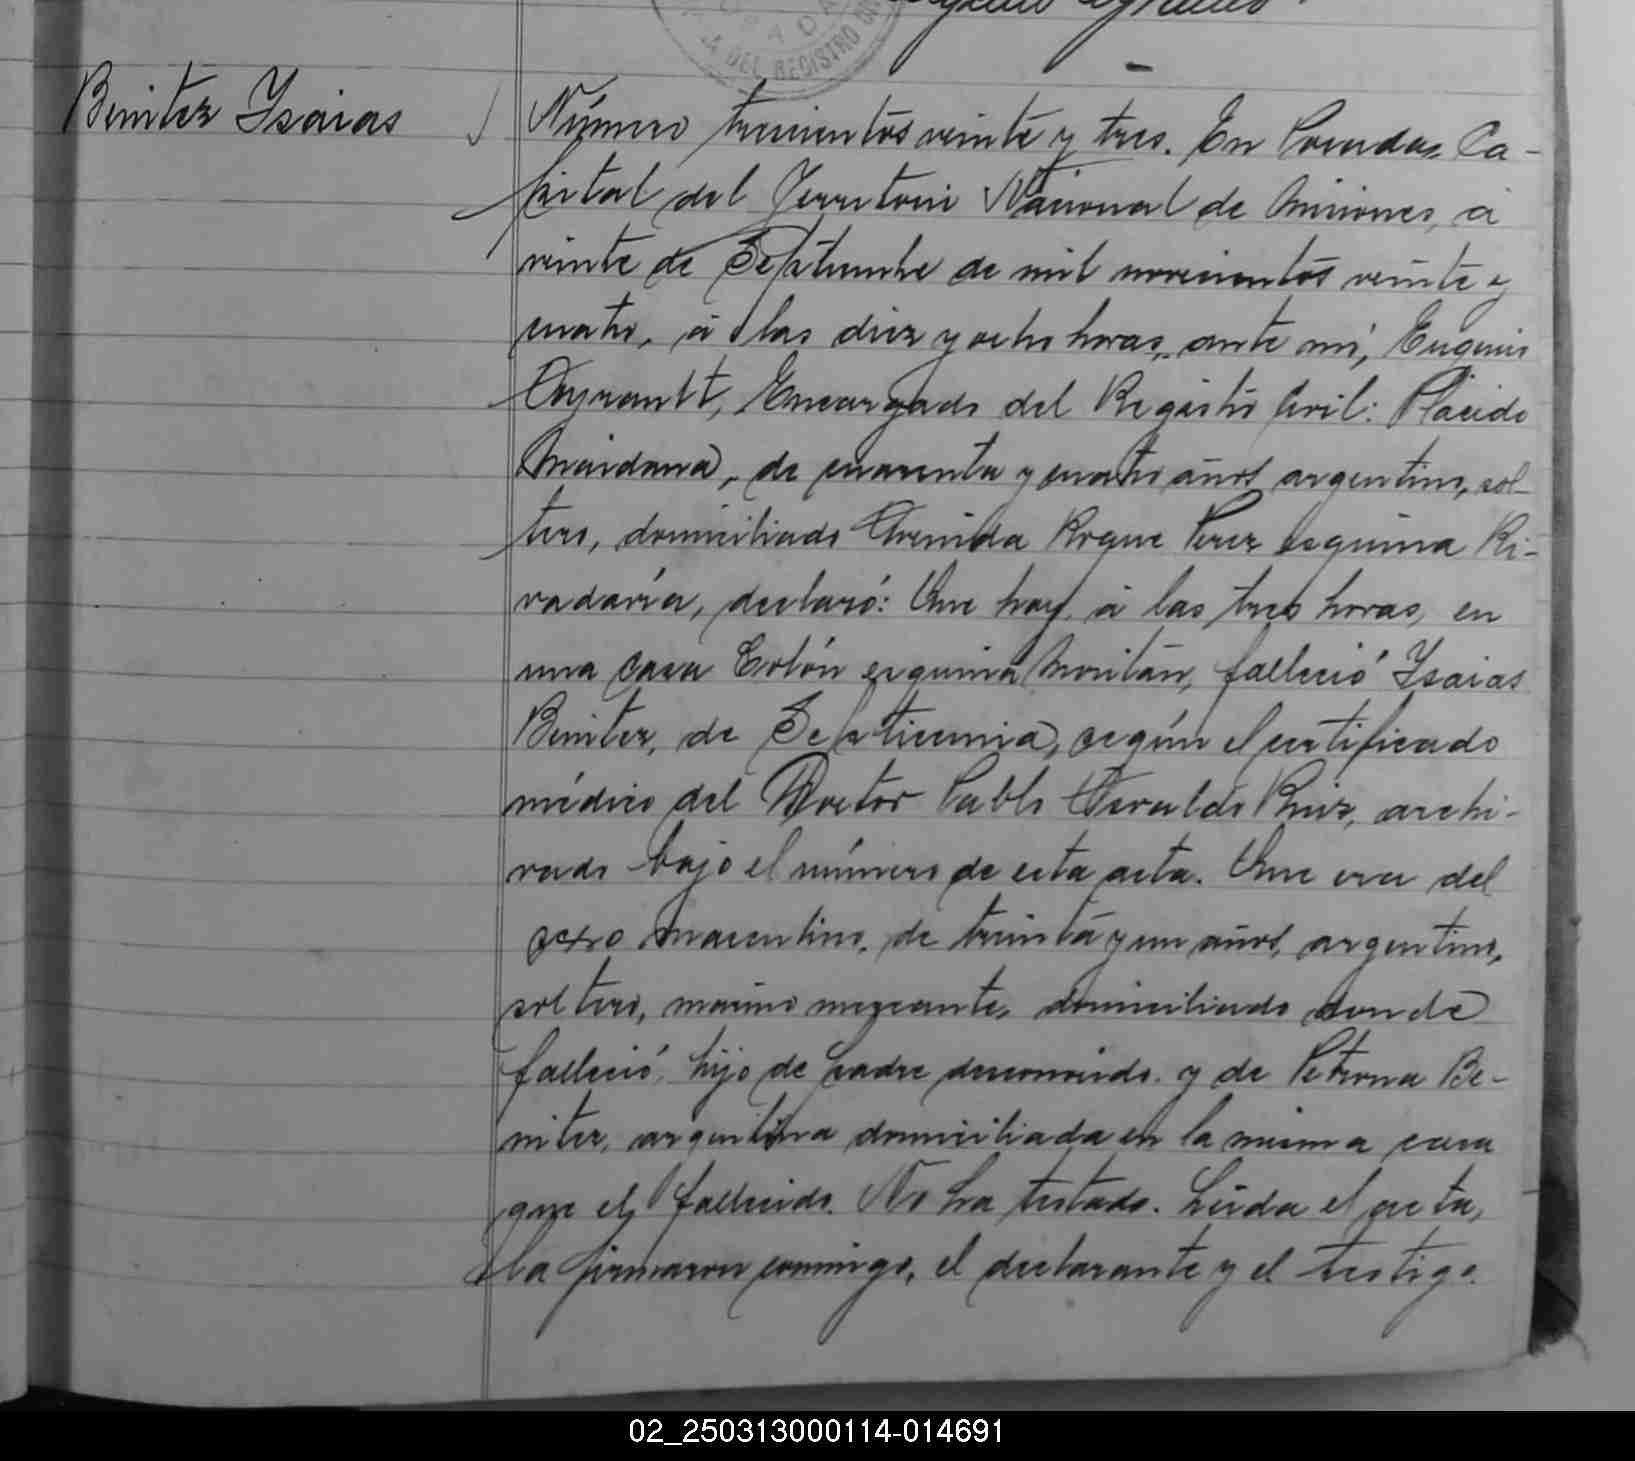 DEL REGISTRO
Benitez Isaias
Número trescientos veinte y tres. En Posadas, Ca-
pital del Territorio Nacional de Misiones, á
veinte de Septiembre de mil novecientos veinte y
cuatro, á las diez y ocho horas, ante mí, Eugenio
Encargado del Registro Civil: Plácido
Maidana, de cuarenta y cuatro años, argentino, sol-
tero, domiciliado Avenida Roque Perez esquina Ri-
vadavia, declaró: Que hoy, á las tres horas, en
una casa Colón esquina falleció Isaias
Benitez, de Septicemia, según el certificado
médico del Doctor Pablo Osvaldo Ruiz, archi-
vado bajo el número de esta acta. Que era del
sexo masculino, de treinta y un años, argentino,
soltero, marino mercante, domiciliado donde
falleció, hijo de padre desconocido y de Petrona Be-
nitez, argentina domiciliada en la misma casa
que el fallecido. No ha testado. Leida el acta,
la firmaron conmigo, el declarante y el testigo.
02_250313000114-014691